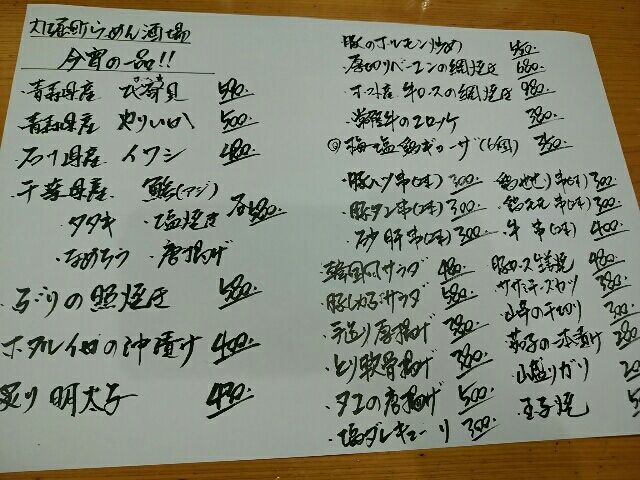 らーめん酒場
今宵の一品!!
青森県産 帆立貝 580.
青森県産 やりいか 500.
石川県産 イワシ 480.
千葉県産 鯵(アジ)
タタキ ・塩焼き 各580.
・なめろう ・唐揚げ
ぶりの照焼き 580.
ホタルイカの沖漬け 400.
炙り明太子 430.
豚のホルモン炒め 550.
厚切りベーコンの網焼き 680.
牛ロースの網焼き 980.
牛のコロッケ 380.
梅塩鶏ギョーザ(6個) 350.
豚ハツ串(2本) 300.
豚タン串(2本) 300.
砂肝串(2本) 300.
鶏せせり串(2本) 300
鶏もも串(2本) 300.
牛串(2本) 400
韓国風サラダ 480.
豚しゃぶサラダ 580.
手造り厚揚げ 380.
とり軟骨揚げ 380.
タコの唐揚げ 500.
塩ダレキューリ 300.
豚ロース生姜焼 480.
ササミチーズカツ 380
山芋の千切り 300
茄子の一本漬け
山盛りガリ
玉子焼